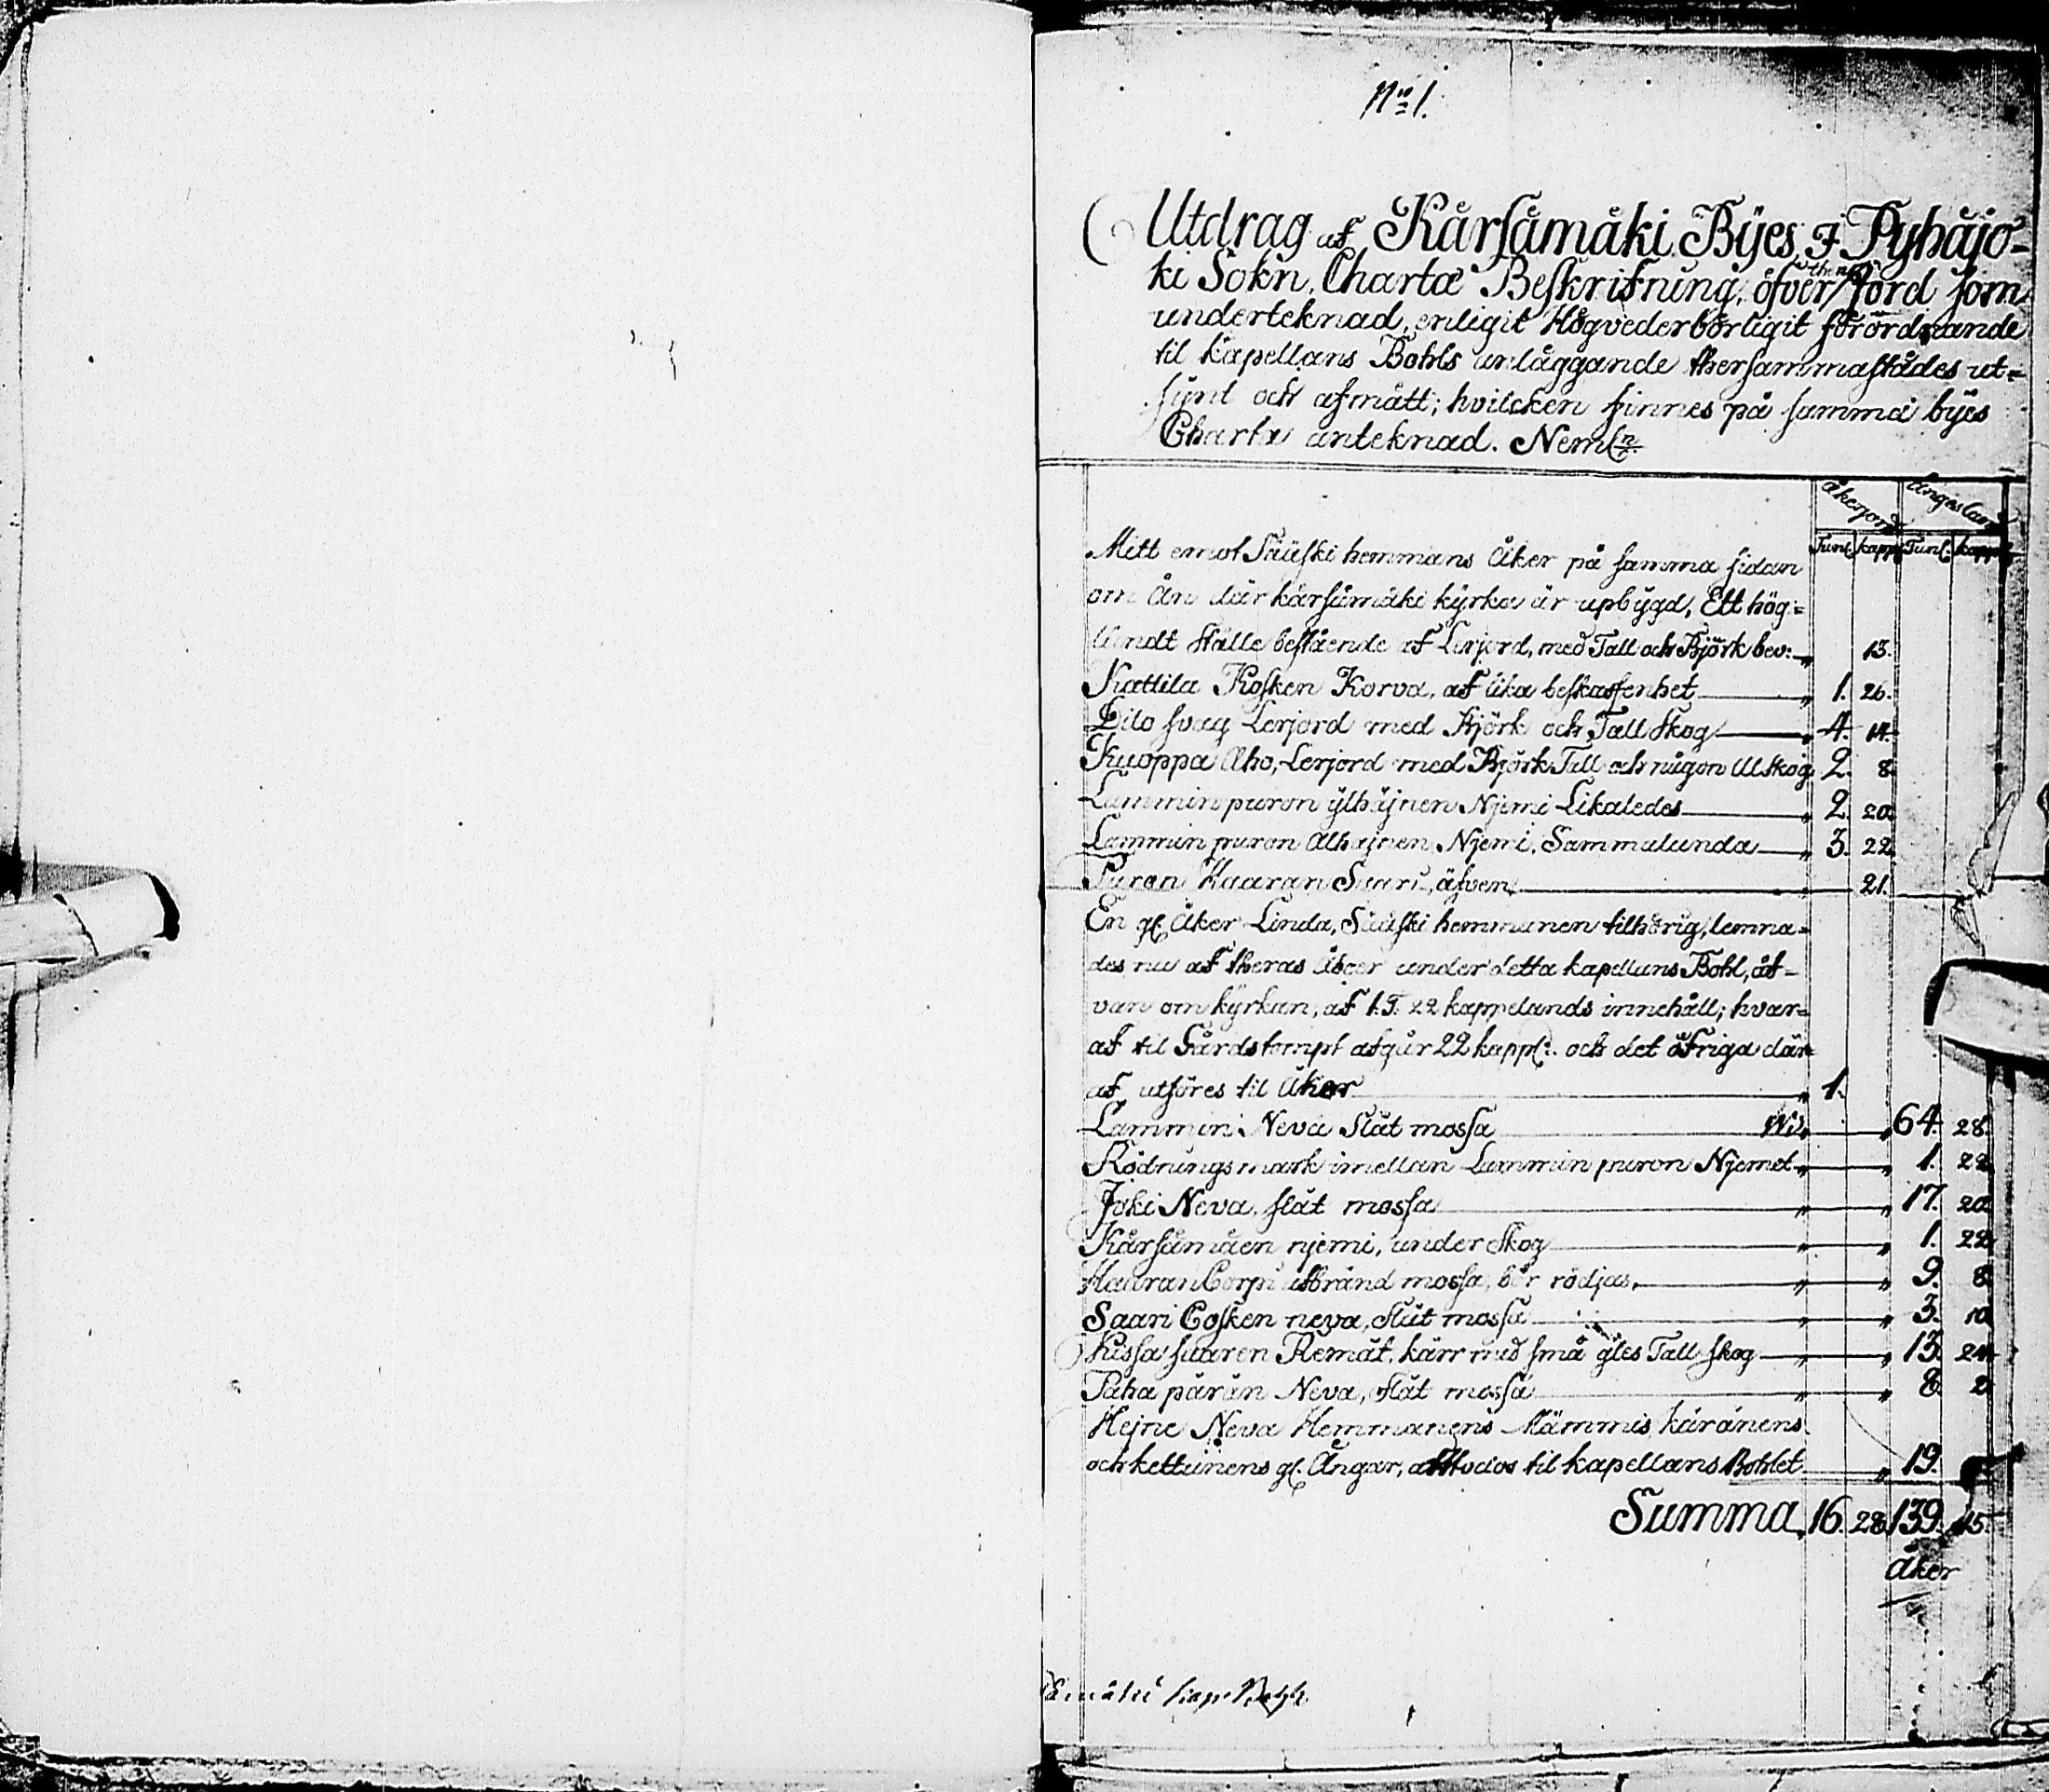 No 1.
Utdrag af Kärsämäki Byes I Pyhäjo-
ki Sokn, Charta Beskrifning, öfver then jord som
underteknad, enligit Högvederbörligit förordnande
til kapellans Bohls anläggande thersammastädes ut-
synt och afmätt; hvilcken finnes på samma byes
Charta anteknad. Neml:n
Åkerjord Ängesland
Tunl. kappl. Tunl. kappl.
Mitt emot Sääski hemmans Åker på samma sidan
om Ån där kärsämäki kyrka är upbygd, Ett hög-
ländt ställe bestående af Lerjord, med Tall och Björk bev: 13.
Kattila Kosken Korva, af lika beskaffenhet 1. 26.
Dito svag Lerjord med Björk och Tall skog 4. 14.
Kuoppa Aho, Lerjord med Björk Tall och någon Al skog 2. 8.
Lammin puron ylhäjnen Njemi Likaledes 2. 20.
Lammin puron Alhajnen Njemi, Sammalunda 3. 22.
Puron Haaran Saari, äfven 21.
En gl. Åker Linda, Sääski hemmanen tilhörig, lemna-
des nu af theras Åboer under detta kapellans Bohl, åf-
van om kyrkan, af 1. T. 22 kappelands innehåll; hvar-
af til Gårdstompt afgår 22 kappl: och det öfriga där-
af utföres til Åker 1.
Lammin Neva Slät mossa 64. 28.
Rödnings mark imellan Lammin puron Njemet 1. 22.
Joki Neva, slät mossa 17. 20.
Kärsämäen njemi, under Skog 1. 22.
Haaran Corpi afbränd mossa, bör rödjas 9. 8.
Saari Cosken neva, Slät mossa 3. 10.
Kissa suaren Remät, kärr med små gles Tall skog 13. 24.
Paha pärän Neva, slät mossa 8. 2.
Hejne Neva Hemmanens Mämmis, käränens
och kettunens gl. Ängar, til kapellans Bohlet 19.
Summa 16. 28. 139. 15.
Åker